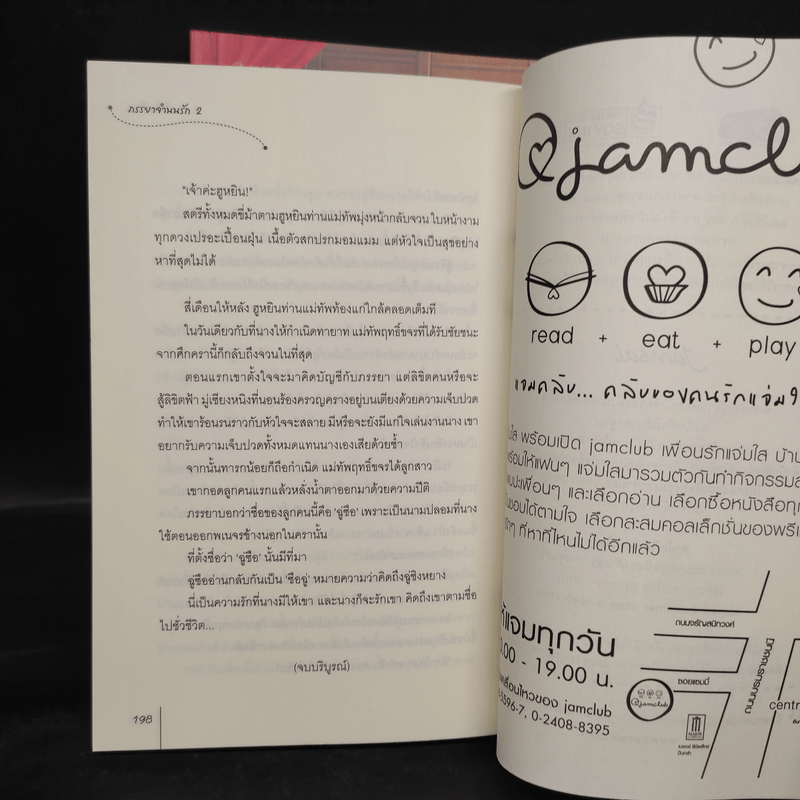 ภรรยาจำนนรัก 2
"เจ้าค่ะฮูหยิน!"
สตรีทั้งหมดขี่ม้าตามฮูหยินท่านแม่ทัพมุ่งหน้ากลับจวน ใบหน้างาม
ทุกดวงเปรอะเปื้อนฝุ่น เนื้อตัวสกปรกมอมแมม แต่หัวใจเป็นสุขอย่าง
หาที่สุดไม่ได้
สี่เดือนให้หลัง ฮูหยินท่านแม่ทัพท้องแก่ใกล้คลอดเต็มที
ในวันเดียวกับที่นางให้กำเนิดทายาท แม่ทัพฤทธิ์ขจรที่ได้รับชัยชนะ
จากศึกครานี้ก็กลับถึงจวนในที่สุด
ตอนแรกเขาตั้งใจจะมาคิดบัญชีกับภรรยา แต่ลิขิตคนหรือจะ
สู้ลิขิตฟ้า มู่เซียงหนิงที่นอนร้องครวญครางอยู่บนเตียงด้วยความเจ็บปวด
ทำให้เขาร้อนรนราวกับหัวใจจะสลาย มีหรือจะยังมีแก่ใจเล่นงานนาง เขา
อยากรับความเจ็บปวดทั้งหมดแทนนางเองเสียด้วยซ้ำ
จากนั้นทารกน้อยก็ถือกำเนิด แม่ทัพฤทธิ์ขจรได้ลูกสาว
เขากอดลูกคนแรกแล้วหลั่งน้ำตาออกมาด้วยความปีติ
ภรรยาบอกว่าชื่อของลูกคนนี้คือ 'อู่ซือ' เพราะเป็นนามปลอมที่นาง
ใช้ตอนออกพเนจรข้างนอกในครานั้น
ที่ตั้งชื่อว่า 'อู่ซือ' นั้นมีที่มา
อู่ซืออ่านกลับกันเป็น 'ซืออู่' หมายความว่าคิดถึงอู่ชิงหยาง
นี่เป็นความรักที่นางมีให้เขา และนางก็จะรักเขา คิดถึงเขาตามชื่อ
ไปชั่วชีวิต...
(จบบริบูรณ์)
198
jamcl
read + eat + play
แจมคลับ... คลับของคนรักแจ่มใ
พร้อมเปิด jamclub เพื่อนรักแจ่มใส บ้าน
พร้อมให้แฟนๆ แจ่มใสมารวมตัวกันทำกิจกรรม
เพื่อนๆ และเลือกอ่าน เลือกซื้อหนังสือทุก
ชอบได้ตามใจ เลือกสะสมคอลเล็กชั่นของพรีเ
ที่หาที่ไหนไม่ได้อีกแล้ว
แจมทุกวัน
.00 - 19.00 น.
เคลื่อนไหวของ jamclub
5596-7, 0-2408-8395
ถนนจรัญสนิทวงศ์
ซอยแซมมี่
ถนนบรมราชชนนี
jamclub
MAJOR
centr